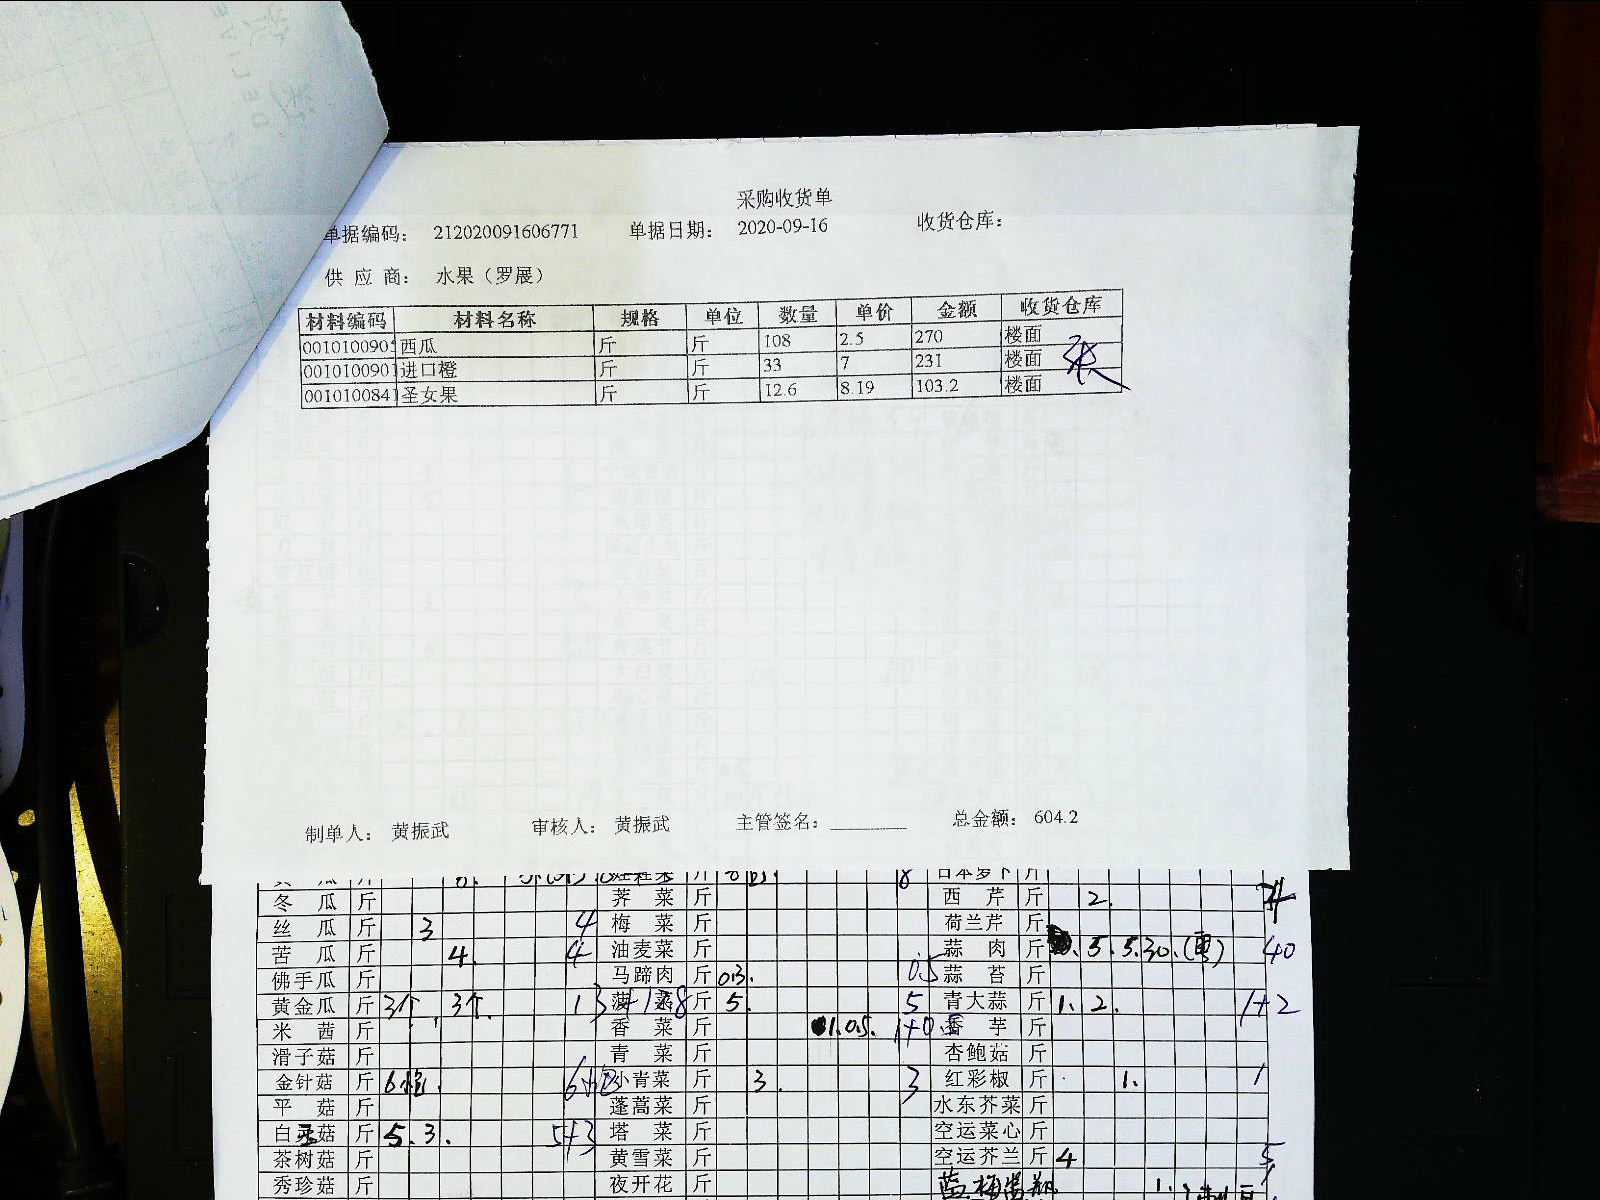 采购收货单
单据编码： 212020091606771 单据日期： 2020-09-16 收货仓库：
供应商： 水果（罗展）
材料编码 材料名称 规格 单位 数量 单价 金额 收货仓库
001010090 西瓜 斤 斤 108 2.5 270 楼面
001010090 进口橙 斤 斤 33 7 231 楼面
001010084 圣女果 斤 斤 12.6 8.19 103.2 楼面
制单人： 黄振武 审核人： 黄振武 主管签名： 总金额： 604.2
日本萝卜 斤
冬瓜 斤 荠菜 斤 西芹 斤 2.
丝瓜 斤 3 4 梅菜 斤 荷兰芹 斤
苦瓜 斤 4. 4 油麦菜 斤 蒜肉 斤 5. 5. 30. 40
佛手瓜 斤 马蹄肉 斤 0.3. 0.5 蒜苔 斤
黄金瓜 斤 3个 3个. 斤 5. 5 青大蒜 斤 1. 2. 1+2
米茜 斤 香菜 斤 1. 0.5. 香芋 斤
滑子菇 斤 青菜 斤 杏鲍菇 斤
金针菇 斤 小青菜 斤 3. 3 红彩椒 斤 1. 1
平菇 斤 蓬蒿菜 斤 水东芥菜 斤
斤 5. 3. 5+3 塔菜 斤 空运菜心 斤
茶树菇 斤 黄雪菜 斤 空运芥兰 斤 4 5
秀珍菇 斤 夜开花 斤